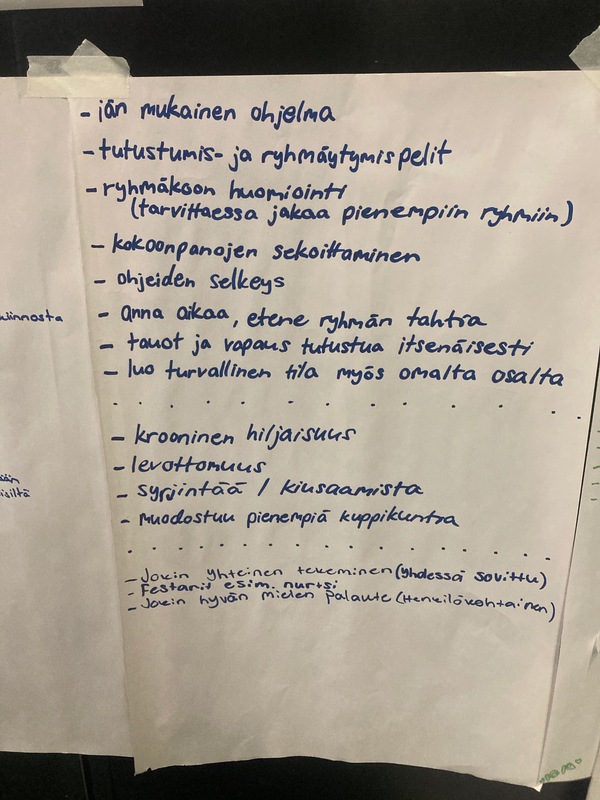 - iän mukainen ohjelma
- tutustumis- ja ryhmäytymispelit
- ryhmäkoon huomiointi
(tarvittaessa jakaa pienempiin ryhmiin)
- kokoonpanojen sekoittaminen
- ohjeiden selkeys
- anna aikaa, etene ryhmän tahtia
- tauot ja vapaus tutustua itsenäisesti
- luo turvallinen tila myös omalta osalta
- krooninen hiljaisuus
- levottomuus
- syrjintää / kiusaamista
- muodostuu pienempiä kuppikuntia
- Jokin yhteinen tekeminen (yhdessä sovittu)
- Festarit esim. nurtsi
- Jokin hyvän mielen palaute (Henkilökohtainen)